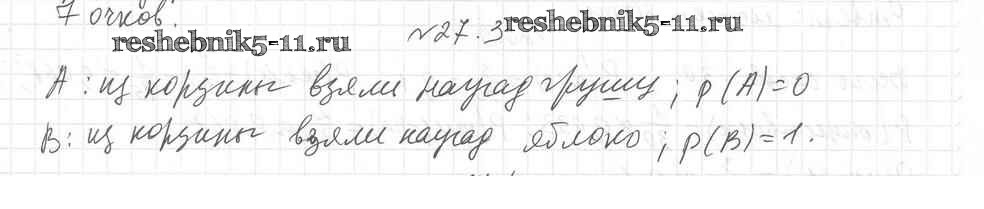 7 очков.
reshebnik5-11.ru №27.3 reshebnik5-11.ru
A: из корзины взяли наугад грушу; p(A)=0
B: из корзины взяли наугад яблоко; p(B)=1.